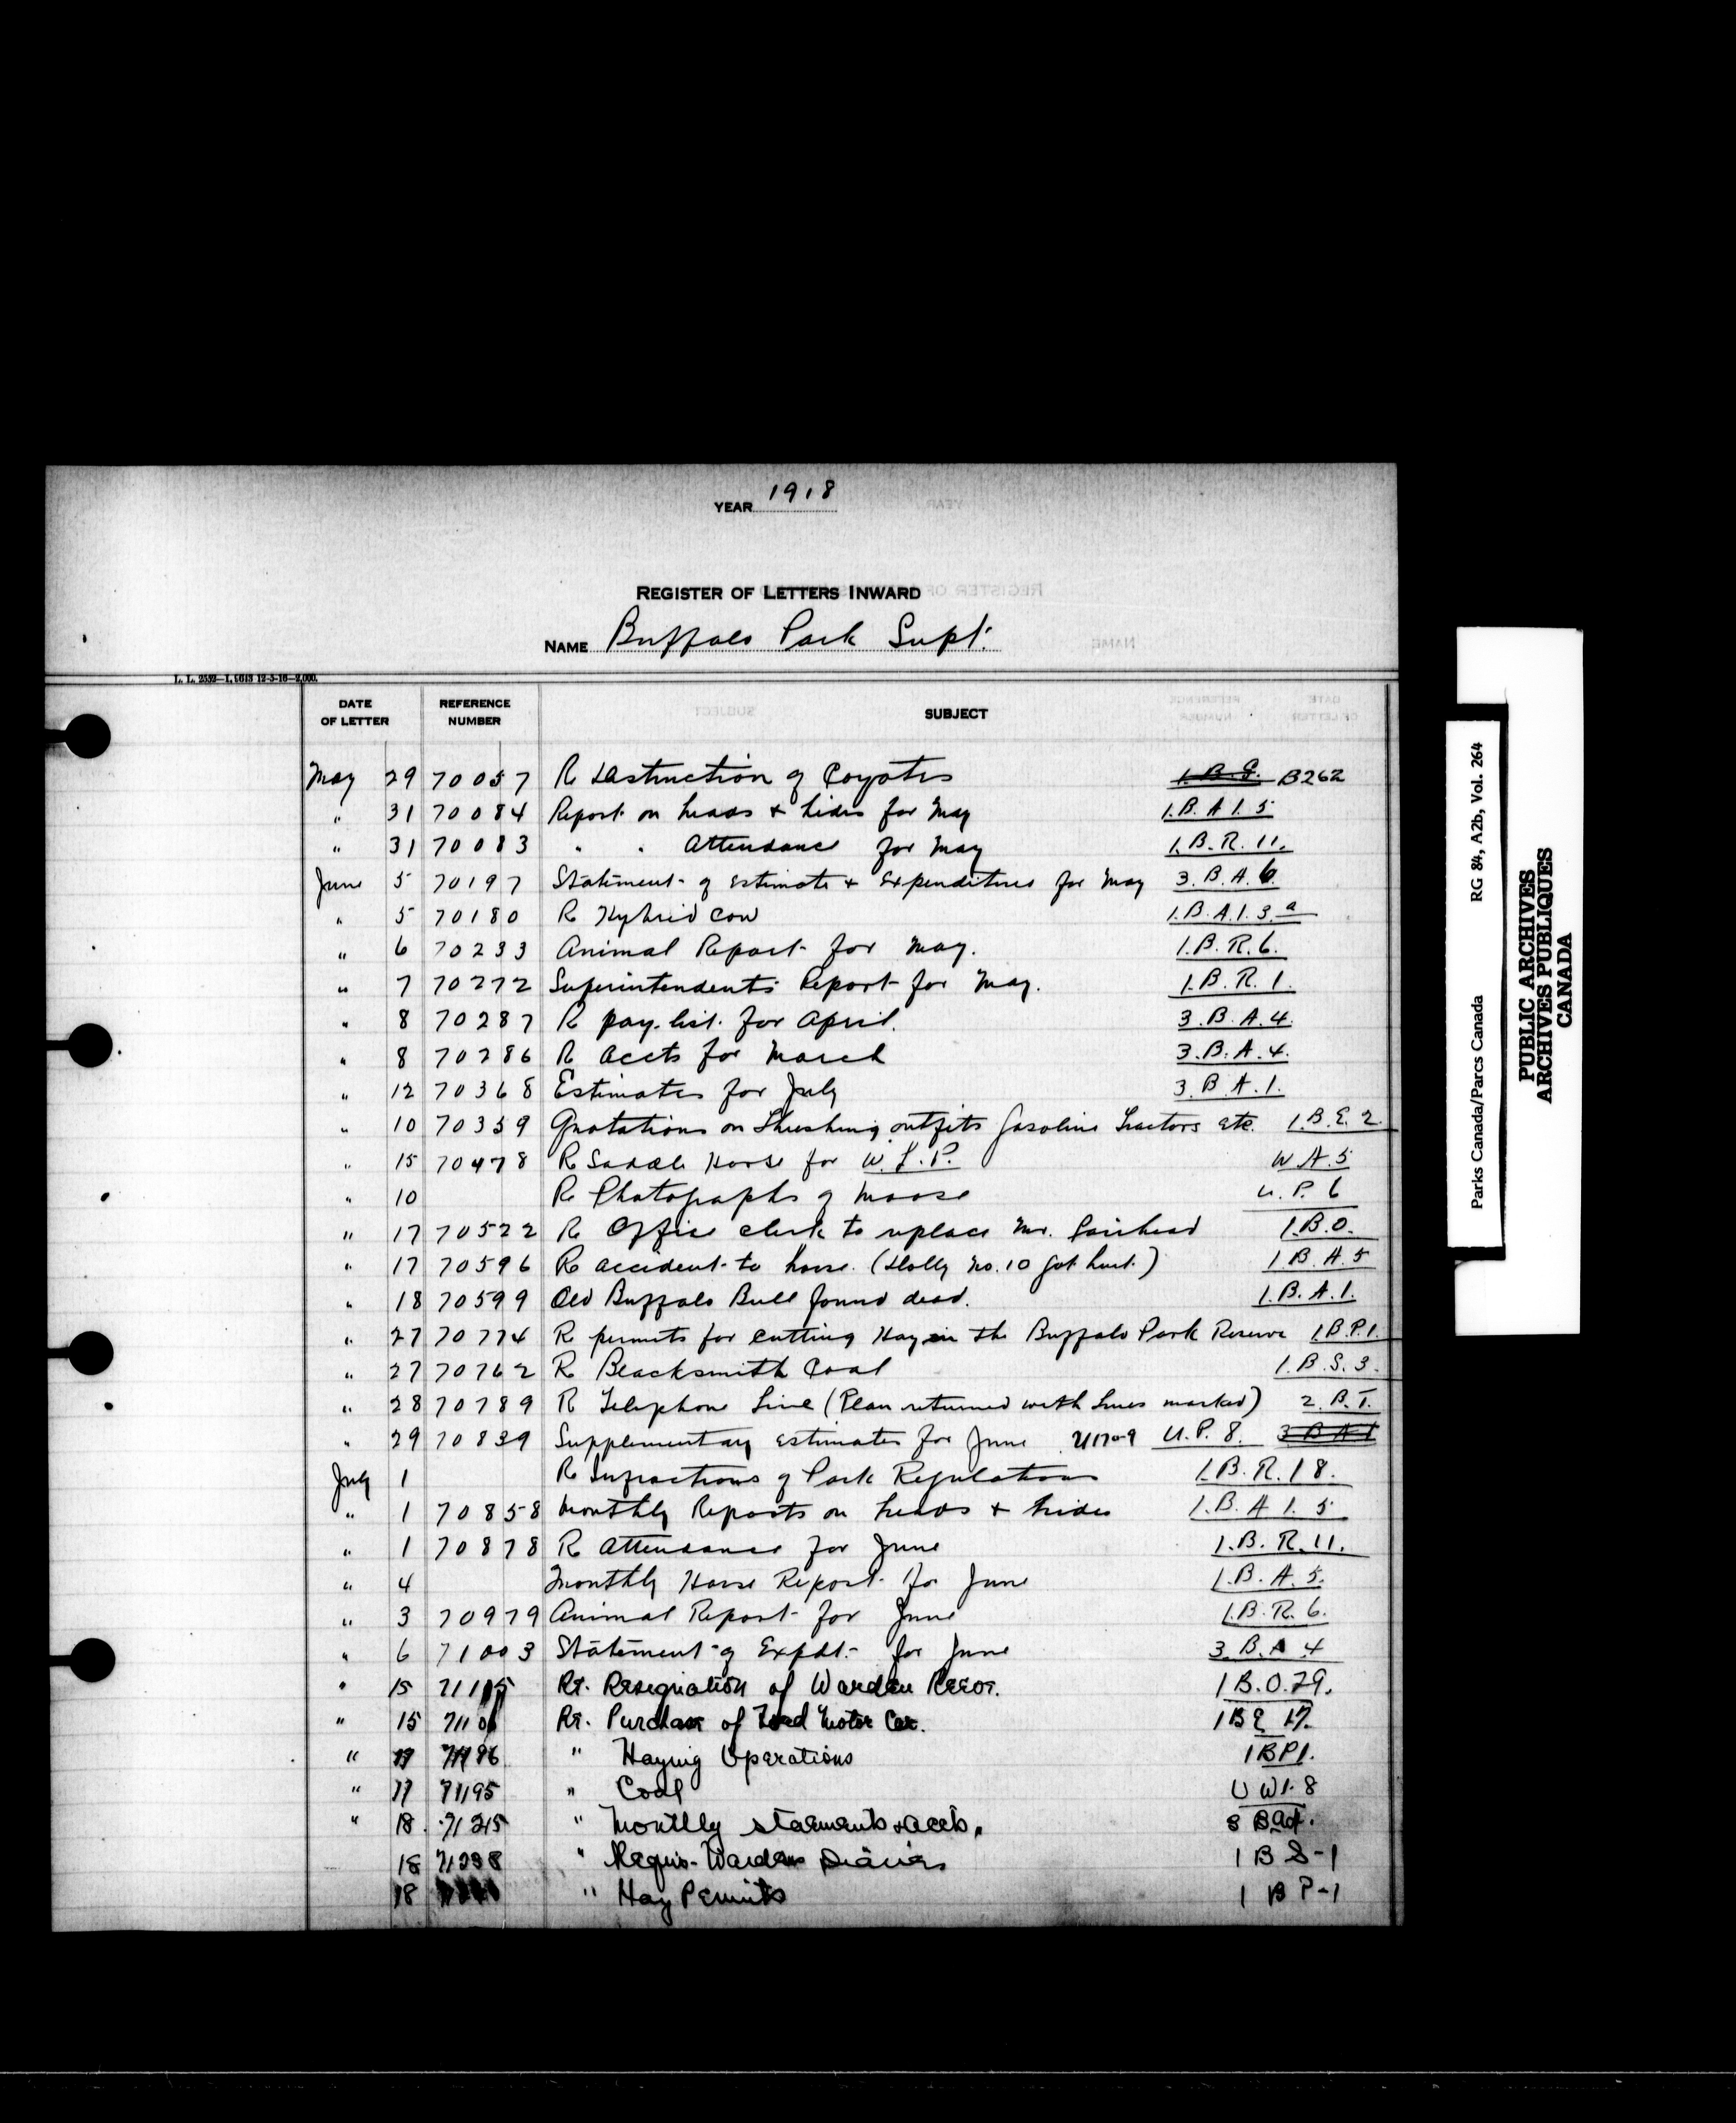 YEAR 1918
REGISTER OF LETTERS INWARD
NAME Buffalo Park Supt.
L. L. 2532—1, 9613 12-5-16—2,000.
DATE OF LETTER REFERENCE NUMBER SUBJECT
May 29 70057 R Destruction of Coyotes 1.B.G. B262
" 31 70084 Report on heads & hides for May 1.B.A 1.5
" 31 70083 " " Attendance for May 1.B.R.11.
June 5 70197 Statement of Estimate & Expenditures for May 3.B.A.6
" 5 70180 R Hybrid Cow 1.B.A.1.3.a
" 6 70233 Animal Report for May. 1.B.R.6.
" 7 70272 Superintendents Report for May. 1.B.R.1.
" 8 70287 R pay-list for April. 3.B.A.4.
" 8 70286 R Accts for March 3.B.A.4.
" 12 70368 Estimates for July 3.B A.1.
" 10 70359 Quotations on Threshing outfits Gasoline Tractors etc. 1.B.E.2.
" 15 70478 R Saddle Horse for W.L.P. W A.5
" 10 R Photographs of Moose U.P.6
" 17 70522 R Office clerk to replace Mr. Fairhead 1.B.O.
" 17 70596 R accident to horse (Holly No. 10 got hurt.) 1 B A.5
" 18 70599 Old Buffalo Bull found dead. 1.B.A.1.
" 27 70774 R permits for cutting Hay in the Buffalo Park Reserve 1.B.P.1.
" 27 70762 R Blacksmith Coal 1.B.S.3.
" 28 70789 R Telephone Line (Plan returned with lines marked) 2.B.T.
" 29 70839 Supplementary estimates for June U1709 U.P.8. 3 B A 1
July 1 R Infractions of Park Regulations 1.B.R.18.
" 1 70858 Monthly Reports on heads & hides 1.B.A 1.5
" 1 70878 R Attendance for June 1.B.R.11.
" 4 Monthly Horse Report for June 1.B.A.5.
" 3 70979 Animal Report for June 1.B.R.6.
" 6 71003 Statement of Expdt. for June 3.B.A.4
" 15 Re. Resignation of Warden 1 B.O.29.
" 15 Re. Purchase of Ford Motor Car. 1 B E 17.
" " Haying Operations 1 B P 1.
" 17 71195 " Coal U W 1.8
" 18. 71215 " Monthly staements & accts.
18 " Requis- Wardens Diaries 1 B S-1
18 " Hay Permits 1 B P-1
Parks Canada/Parcs Canada RG 84, A2b, Vol. 264
PUBLIC ARCHIVES
ARCHIVES PUBLIQUES
CANADA